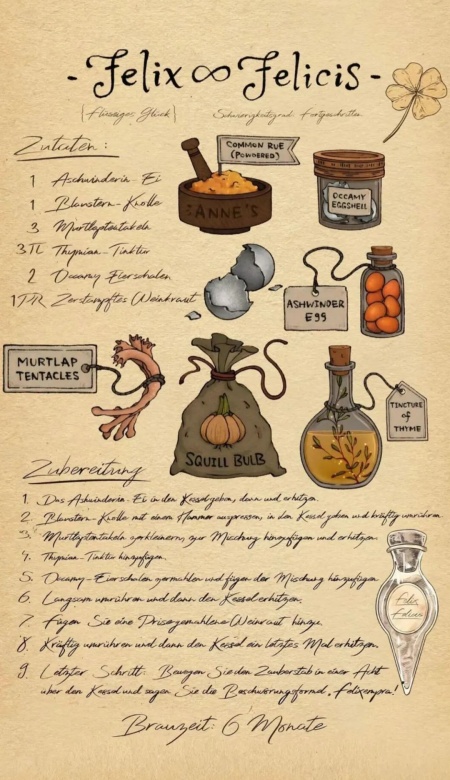 - Felix ∞ Felicis -
(Flüssiges Glück)
Schwierigkeitsgrad: Fortgeschritten
Zutaten:
1 Aschwinderin-Ei
1 Blaustern-Knolle
3 Murtlaptentakeln
3TL Thymian-Tinktur
2 Occamy Eierschalen
1PR Zerstampftes Weinkraut
COMMON RUE
(POWDERED)
ANNE'S
OCCAMY
EGGSHELL
ASHWINDER
EGG
MURTLAP
TENTACLES
SQUILL BULB
TINCTURE
OF
THYME
Zubereitung
1. Das Aschwinderin-Ei in den Kessel geben, dann und erhitzen.
2. Blaustern-Knolle mit einem Hammer auspressen, in den Kessel geben und kräftig umrühren
3. Murtlaptentakeln zerkleinern, zur Mischung hinzufügen und erhitzen.
4. Thymian-Tinktur hinzufügen.
5. Occamy-Eierschalen zermahlen und fügen der Mischung hinzufügen
6. Langsam umrühren und dann den Kessel erhitzen.
7. Fügen Sie eine Prise gemahlene Weinraut hinzu.
8. Kräftig umrühren und dann den Kessel ein letztes Mal erhitzen.
9. Letzter Schritt: Bewegen Sie den Zauberstab in einer Acht
über den Kessel und sagen Sie die Beschwörungsformel „Felixempra!
Felix
Felicis
Brauzeit: 6 Monate